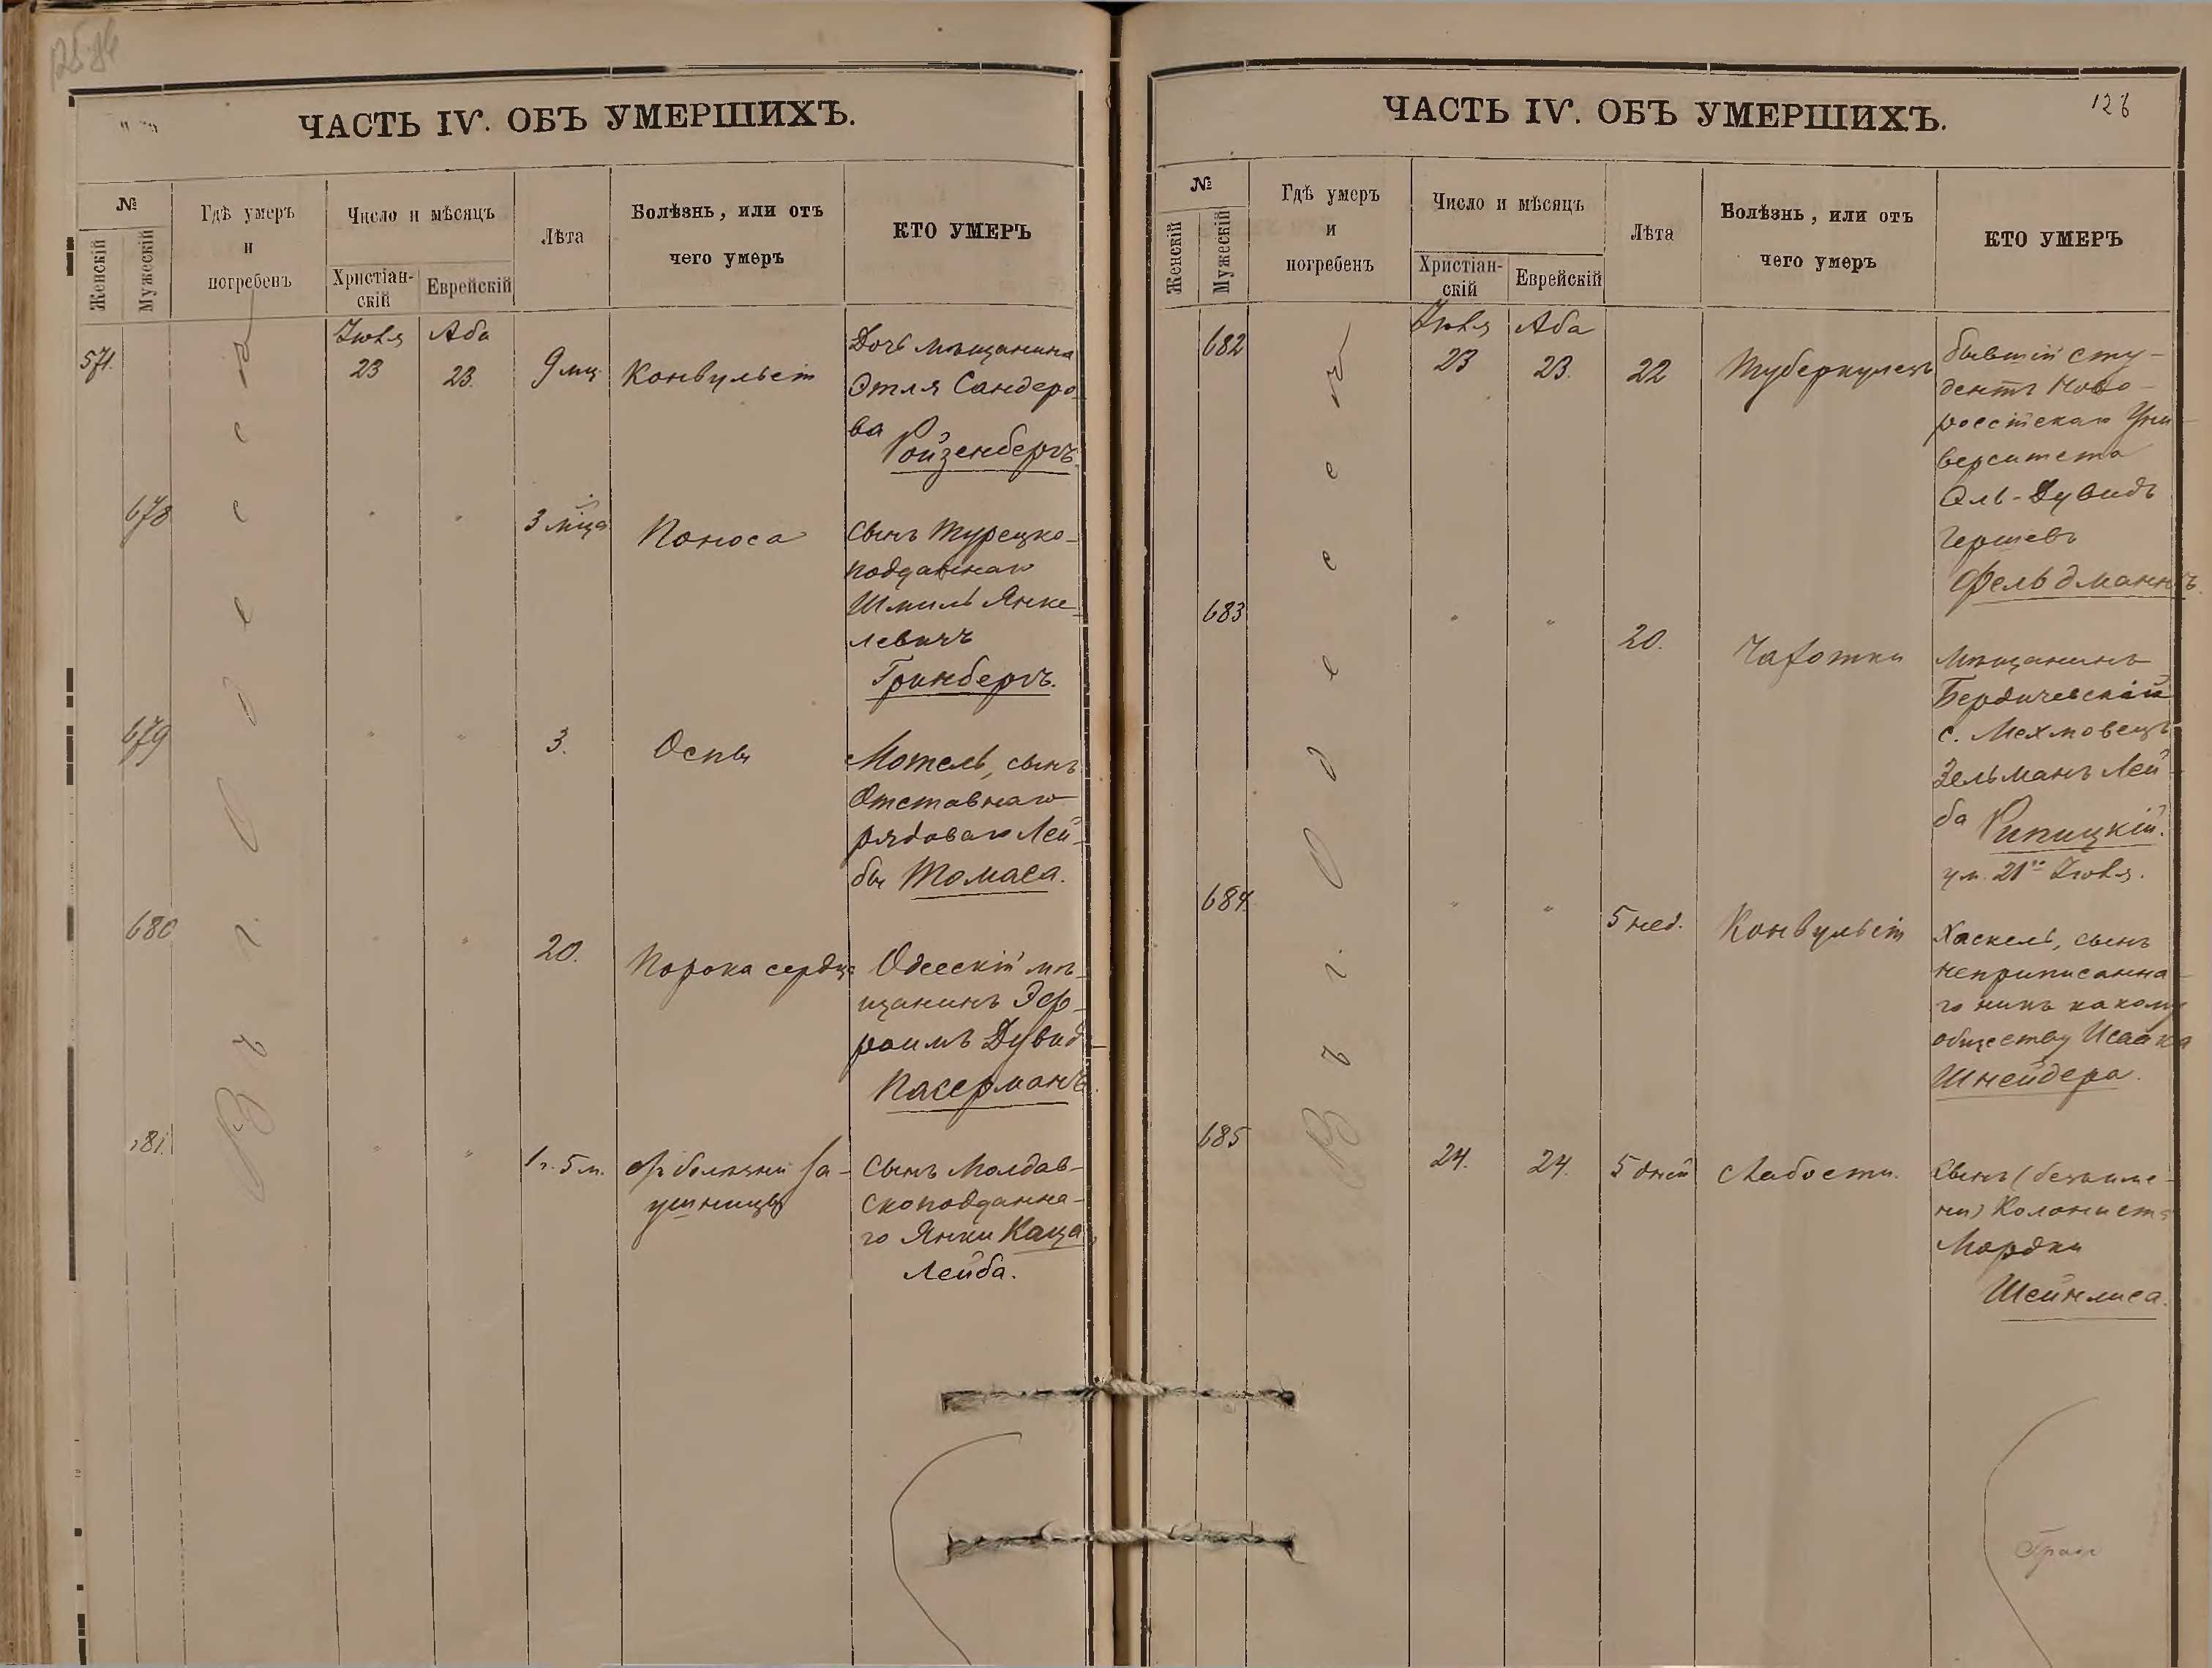 ЧАСТЬ IV. ОБЪ УМЕРШИХЪ.
№
Женскій
Мужескій
Гдѣ умеръ
и
погребенъ
Число и мѣсяцъ
Христіан-
скій
Еврейскій
Лѣта
Болѣзнь, или отъ
чего умеръ
КТО УМЕРЪ
Въ г. Одессѣ
571.
Іюля
23
Аба
23.
9 мц
Конвульсіи
Дочь мѣщанина
Этля Сандеро-
ва
Ройзенбергъ
678
"
"
3 мѣца
Поноса
Сынъ турецко-
подданнаго
Шмиль Янке-
левичъ
Гринбергъ.
679
"
"
3.
Оспы
Мотель, сынъ
Отставнаго
рядоваго Лей-
бы Томаса.
680
"
"
20.
Порока сердца
Одесскій мѣ-
щанинъ Эф-
роимъ Дувид-
Пасерманъ.
681.
"
"
1 г. 5 м.
болѣзни за-
ушницы
Сынъ Молдав-
скоподданна-
го Янки Каца
Лейба.
ЧАСТЬ IV. ОБЪ УМЕРШИХЪ.
126
№
Женскій
Мужескій
Гдѣ умеръ
и
погребенъ
Число и мѣсяцъ
Христіан-
скій
Еврейскій
Лѣта
Болѣзнь, или отъ
чего умеръ
КТО УМЕРЪ
Въ г. Одессѣ
682
Іюля
23
Аба
23.
22
Туберкулезъ
бывшій сту-
дентъ Ново-
россійскаго Уни-
верситета
Эль-Дувидъ
Гершевъ
Фельдманнъ.
683
"
"
20.
Чахотки
Мѣщанинъ
Бердичевскій
с. Махновецъ
Зельманъ Лей-
ба Рипицкій.
ум. 21го Іюля.
684.
"
"
5 нед.
Конвульсіи
Хаскель, сынъ
неприписанна-
го нинъ какому
обществу Исаака
Шнейдера.
685
24.
24.
5 дней
Слабости.
Сынъ (безъиме-
ни) Колониста
Мордки
Шейнлиса.